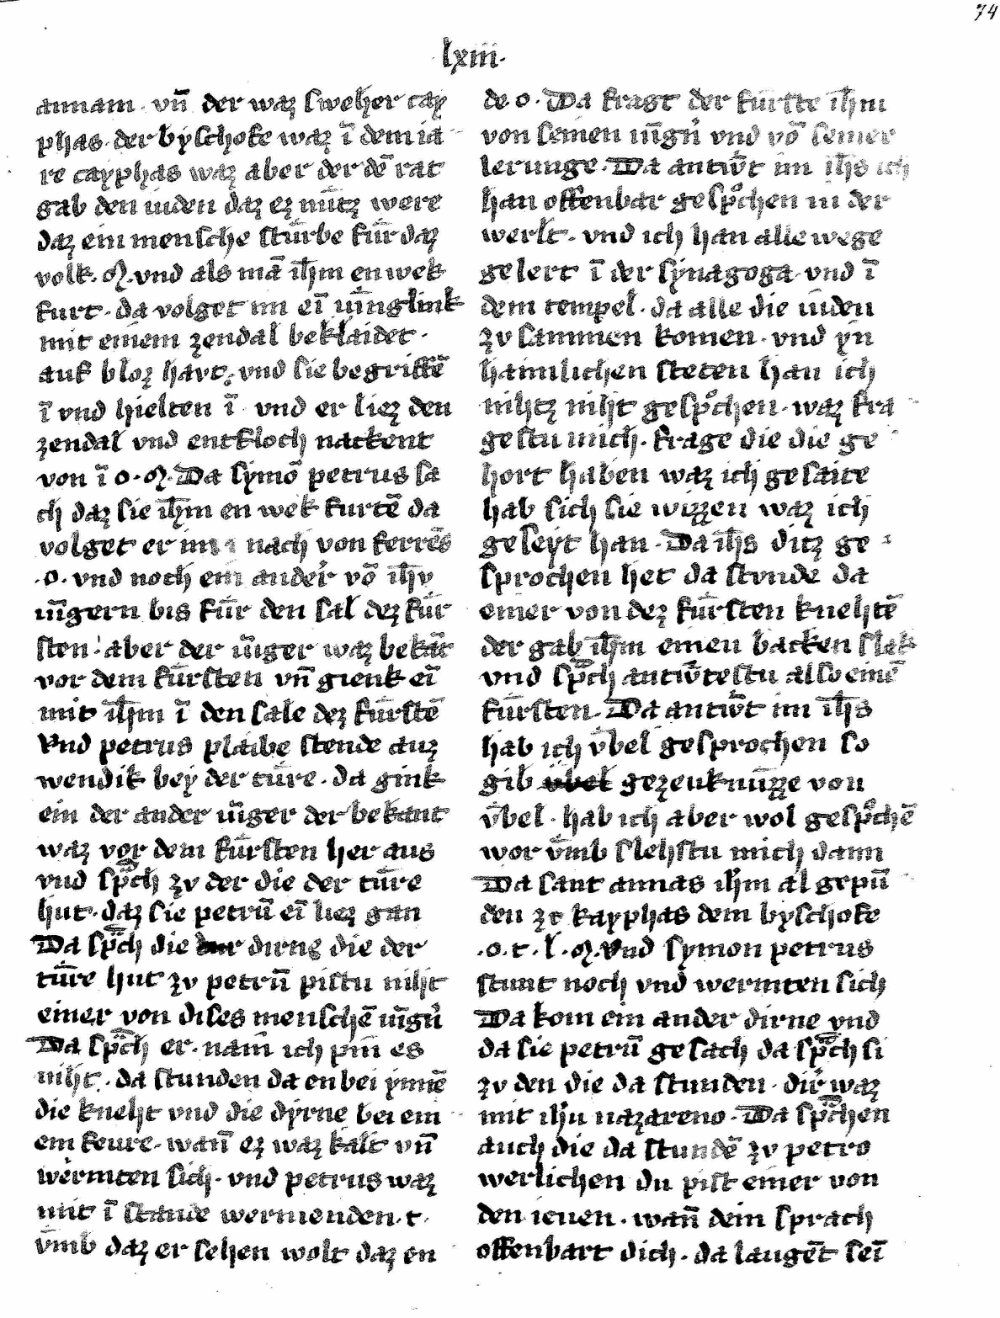 74
lxiii.
annam . vn̄ der waz sweher cay
phas . der byschofe waz ī dem ia
re cayphas waz aber der dē rat
gab den iuden daz ez nu̅tz were
daz ein mensche stu̅rbe fu̅r daz
volk . M . vnd als mā ih̄m en wek
furt . da volget im eī iu̅nglink
mit einem zendal beklaidet .
auf bloz havt . vnd sie begriffē
ī vnd hielten ī vnd er liez den
zendal vnd entfloch nackent
von ī o . M . Da symō petrus sa
ch daz sie ih̄m en wek furtē da
volget er im nach von ferrēs
. o . vnd noch ein ander vō ih̄v
iu̅ngern bis fu̅r den sal dez fu̅r
sten . aber der iu̅ger waz bekāt
vor dem fu̅rsten vn̄ gienk eī
mit ih̄m ī den sale dez fu̅rstē
Vnd petrus plaibe stende auz
wendik bey der tu̅re . da gink
ein der ander iu̅ger der bekant
waz vor dem fu̅rsten her aus
vnd sp̄ch zv der die der tu̅re
hut . daz sie petru̅ eī liez gan
Da sp̄ch die dirne die der
tu̅re hut zv petru̅ pistu niht
einer von dises menschē iu̅gn̄
Da sp̄ch er . nain̄ ich pin̄ es
niht . da stunden da en bei ymnē
die kneht vnd die dyrne bei ein
em feure . wan̄ ez waz kalt vn̄
wermten sich . vnd petrus waz
mit ī stande wermenden . t .
v̄mb daz er sehen wolt daz en
de o . Da fragt der fu̅rste ih̄m
von seinen iu̅gn̄ vnd vō seiner
lerunge . Da antwͦt im ih̄s ich
han offenbar gespͦchen in der
werlt . vnd ich han alle wege
gelert ī der synagoga vnd ī
dem tempel . da alle die iuden
zv sammen komen . vnd yn
haimlichen steten han ich
nihtz niht gespͦchen . waz fra
gestu mich . frage die die ge
hort haben waz ich gesaite
hab sich sie wizzen waz ich
geseyt han . Da ih̄s ditz ge
sprochen het da stvnde da
einer von dez fu̅rsten knehtē
der gab ih̄m einen backen slak
vnd sp̄ch antwͤtestu also einē
fu̅rsten . Da antwͦt im ih̄s
hab ich v̄bel gesprochen so
gib gezeuknu̅zze von
v̄bel . hab ich aber wol gespͦchē
wor v̄mb slehstu mich dann
Da sant annas ih̄m al gepu̅
den zv kayphas dem byschofe
. o . t . l . M . Vnd symon petrus
stunt noch vnd wermten sich
Da kom ein ander dirne vnd
da sie petru̅ gesach da sp̄ch si
zv den die da stunden . dir̄ waz
mit ih̄u nazareno . Da sp̄chen
auch die da stundē zv petro
werlichen du pist einer von
den ienen . wan̄ dein sprach
offenbart dich . da laugēt seī